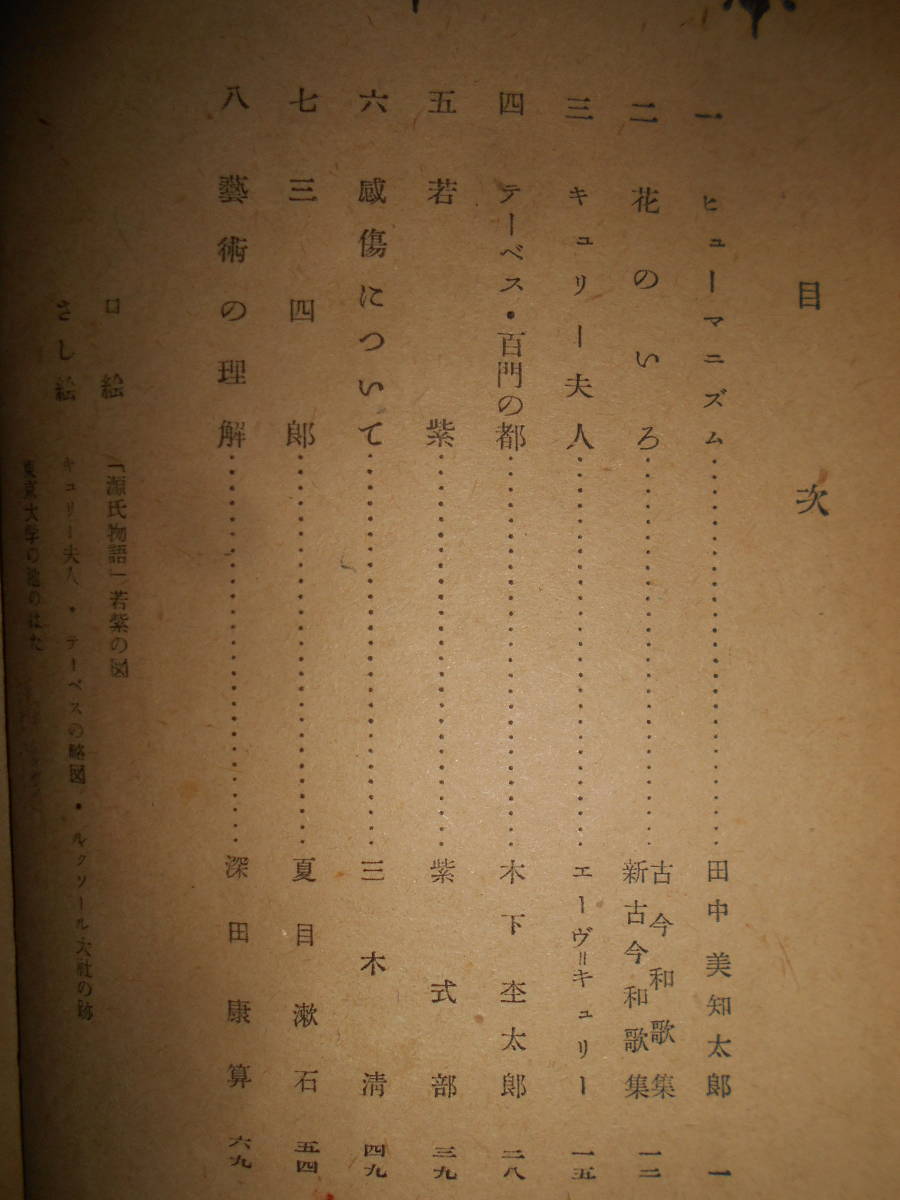 目次
一 ヒューマニズム……………田中美知太郎 一
二 花のいろ……………古今和歌集
新古今和歌集 一二
三 キュリー夫人……………エーヴ=キュリー 一五
四 テーベス・百門の都……………木下杢太郎 二八
五 若紫……………紫式部 三九
六 感傷について……………三木清 四九
七 三四郎……………夏目漱石 五四
八 藝術の理解……………深田康算 六九
口絵 「源氏物語」若紫の図
さし絵 キュリー夫人・テーベスの略図・ルクソール大社の跡
東京大学の池のはた